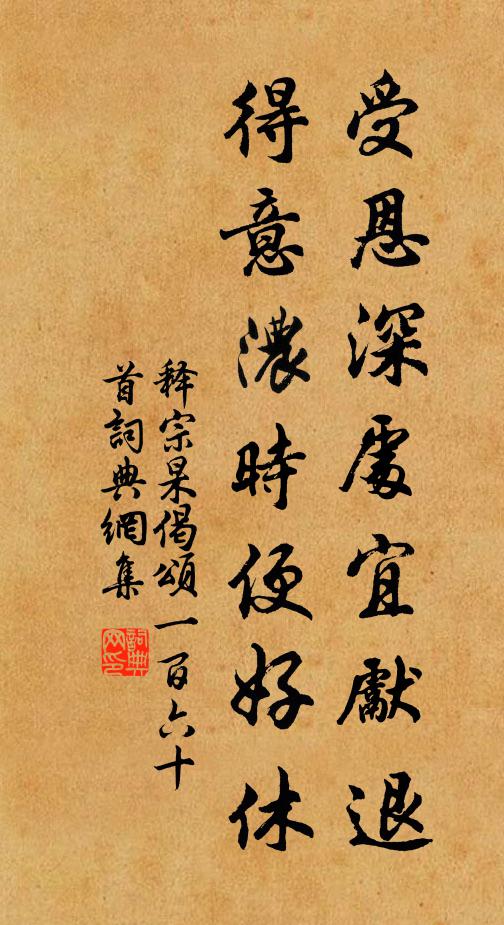 受恩深處宜獻退
得意濃時便好休
释宗杲偈頌一百六十
首詞典網集
詞典
网印